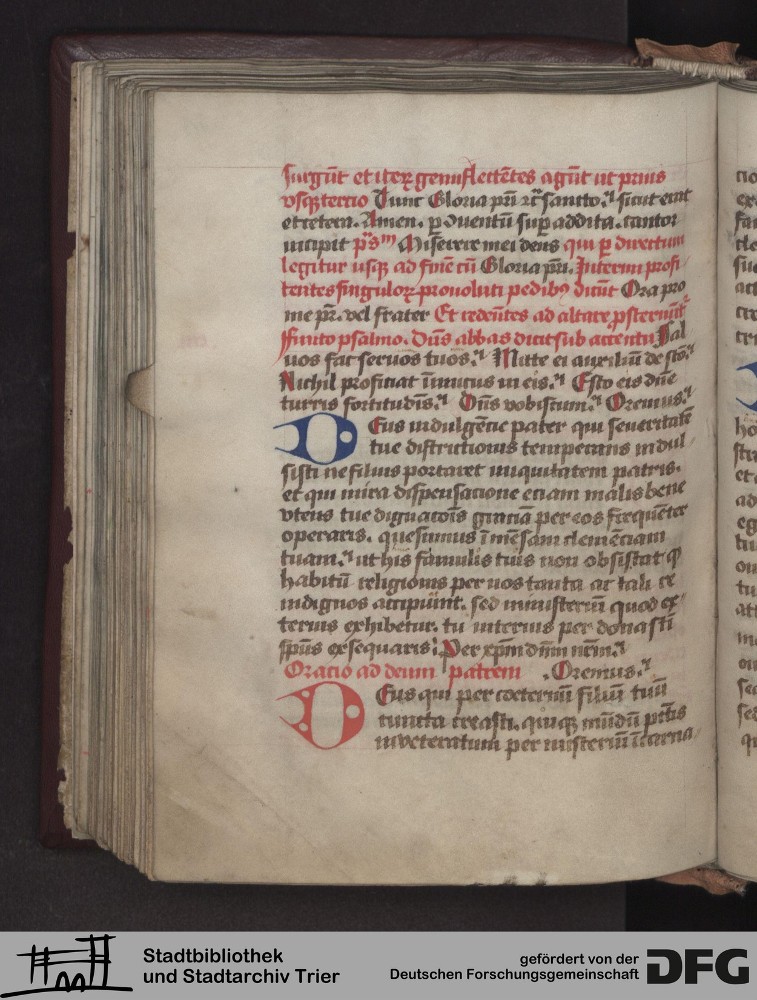 surgūt et iteꝝ genuflectētes agūt ut prius
vsqꝫ tercio Tunc Gloria pri et sancto. sicut erat
et cetera. Amen. p Aduentū sup addita. cantor
incipit psm Miserere mei deus qui p directum
legitur usqꝫ ad finē cū Gloria pri. Interim profi-
tentes singuloꝝ prouoluti pedibꝰ dicūt Ora pro
me pr. vel frater Et redeūtes ad altare psternūt
finito psalmo. Dūs abbas dicit sub accentu Sal
uos fac seruos tuos. Mitte ei auxiliū de sco.
Nichil proficiat inimicus in eis. Esto eis dne
turris fortitudis. Dn̄s vobiscum. Oremus.
Deus indulgēcie pater qui seueritatē
tue districtionis temperans indul-
sisti ne filius portaret iniquitatem patris.
et qui mira dispensacione eciam malis bene
vtens tue dignacōis graciā per eos frequēter
operaris. quesumus īmēsam clemēciam
tuam. ut his famulis tuis non obsistat q
habitū religionis per nos tanta ac tali re
indignos accipiunt. sed ministeriū quod ex-
terius exhibetur. tu interius per donū sācti
spūs exsequaris. Per xpm dnm nrm.
Oracio ad deum patrem . Oremus.
Deus qui per coeternū filiū tuū
cuncta creasti. quiqꝫ mūdū pctis
inueteratum per misteriū īcarna
Stadtbibliothek
und Stadtarchiv Trier
gefördert von der
Deutschen Forschungsgemeinschaft
DFG